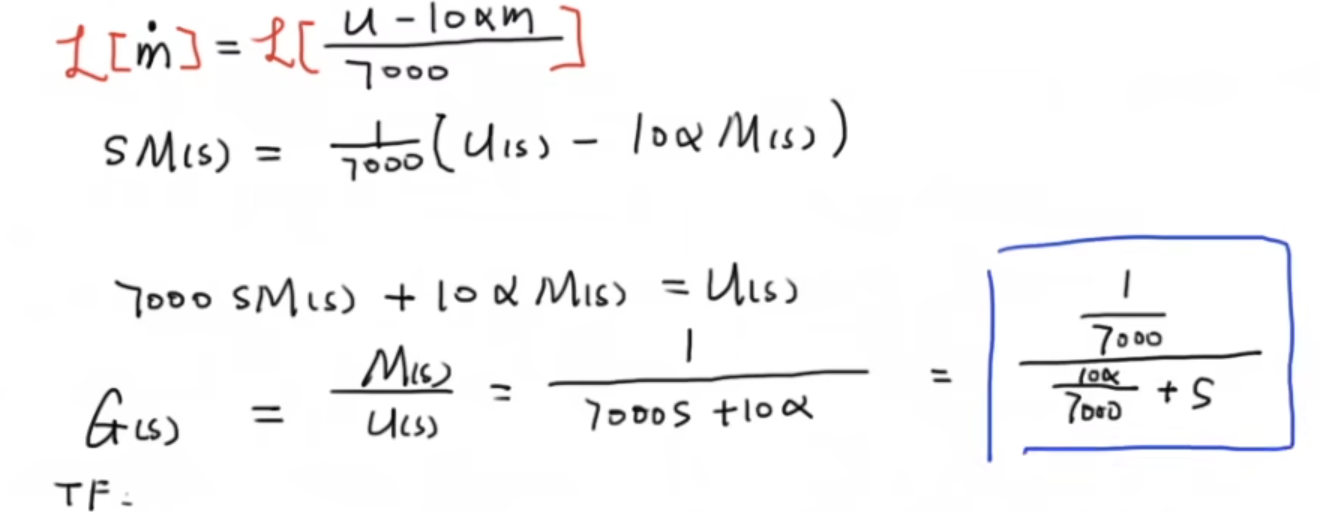 ℒ[ṁ] = ℒ[(u - 10αm)/7000]
SM(s) = 1/7000 (U(s) - 10αM(s))
7000 SM(s) + 10αM(s) = U(s)
G(s) = M(s)/U(s) = 1/(7000S + 10α) = (1/7000)/(10α/7000 + S)
TF: